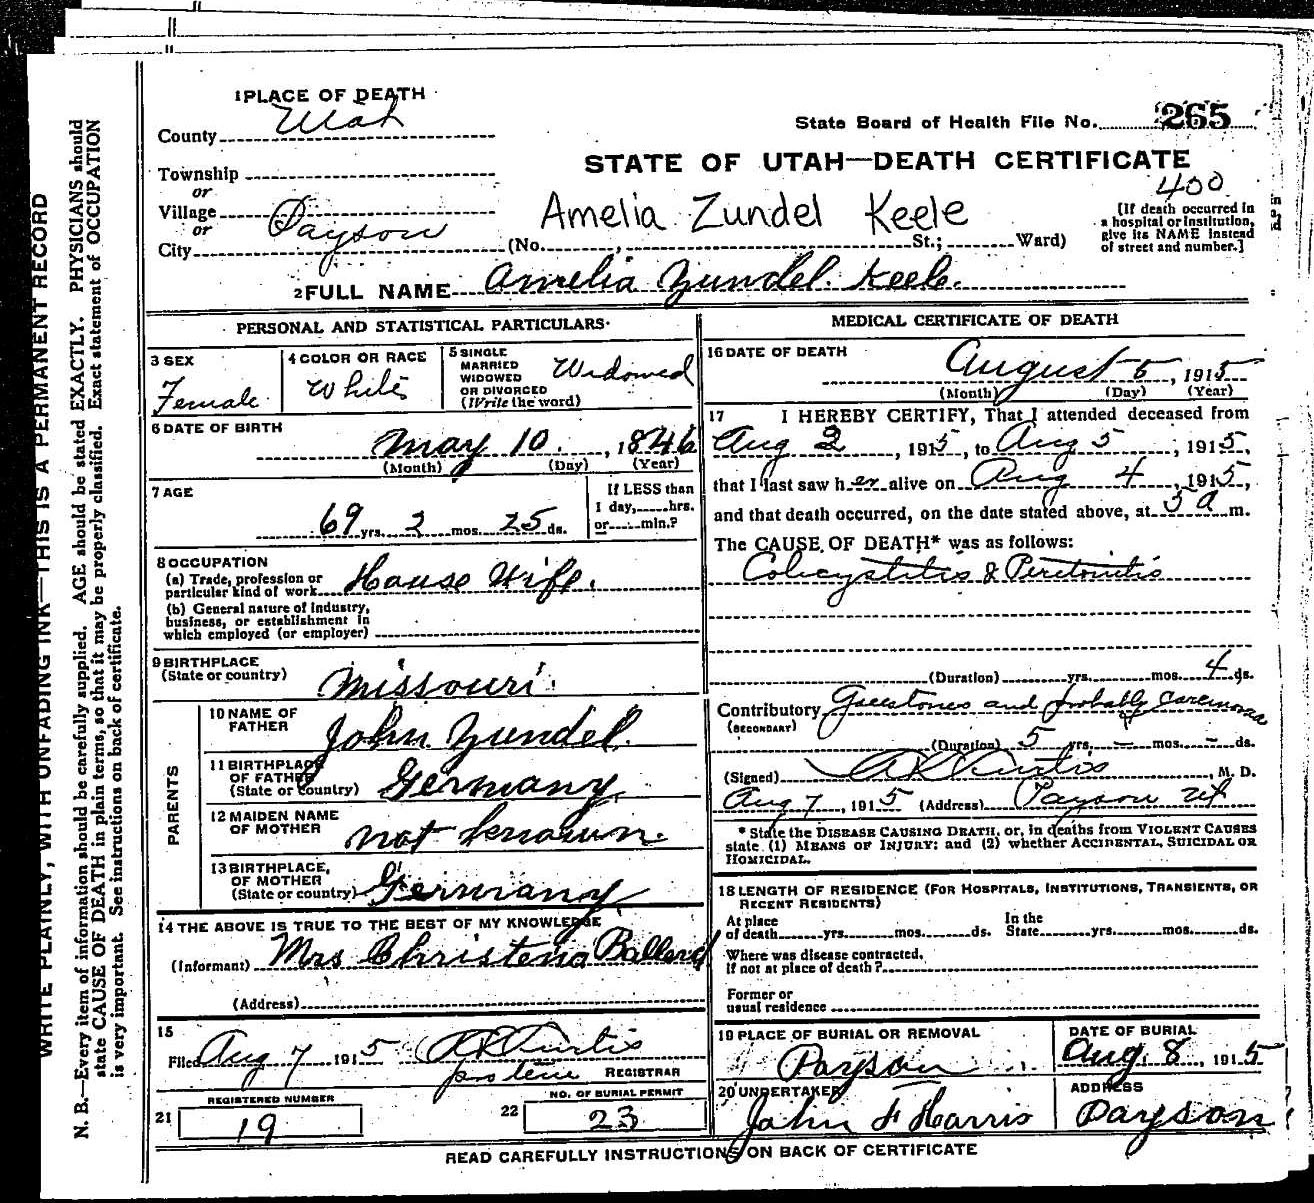 1 PLACE OF DEATH
County Utah
State Board of Health File No. 265
STATE OF UTAH—DEATH CERTIFICATE
Township
or
400
Village
or
City Payson
Amelia Zundel Keele
(No. , St.; Ward)
[If death occurred in
a hospital or institution,
give its NAME instead
of street and number.]
2 FULL NAME Amelia Zundel Keele.
PERSONAL AND STATISTICAL PARTICULARS
3 SEX
Female
4 COLOR OR RACE
White
5 SINGLE
MARRIED
WIDOWED
OR DIVORCED
(Write the word)
Widowed
6 DATE OF BIRTH
May 10, 1846
(Month) (Day) (Year)
7 AGE
69 yrs. 2 mos. 25 ds.
If LESS than
1 day, hrs.
or min.?
8 OCCUPATION
(a) Trade, profession or
particular kind of work House Wife.
(b) General nature of industry,
business, or establishment in
which employed (or employer)
9 BIRTHPLACE
(State or country)
Missouri
PARENTS
10 NAME OF
FATHER
John Zundel.
11 BIRTHPLACE
OF FATHER
(State or country) Germany
12 MAIDEN NAME
OF MOTHER
not known.
13 BIRTHPLACE,
OF MOTHER
(State or country) Germany
14 THE ABOVE IS TRUE TO THE BEST OF MY KNOWLEDGE
(Informant) Mrs Christena Ballard
(Address)
15
Filed Aug 7 1915 Curtis
REGISTRAR
REGISTERED NUMBER
21 19
NO. OF BURIAL PERMIT
22 23
MEDICAL CERTIFICATE OF DEATH
16 DATE OF DEATH
August 5, 1915
(Month) (Day) (Year)
17 I HEREBY CERTIFY, That I attended deceased from
Aug 2, 1915, to Aug 5, 1915,
that I last saw her alive on Aug 4, 1915,
and that death occurred, on the date stated above, at 5 a m.
The CAUSE OF DEATH* was as follows:
Colecystitis & Peritonitis
(Duration) yrs. mos. 4 ds.
Contributory Gaulstones and probably carcinoma
(SECONDARY)
(Duration) 5 yrs. – mos. – ds.
(Signed) Curtis, M. D.
Aug 7, 1915 (Address) Payson Ut
* State the DISEASE CAUSING DEATH, or, in deaths from VIOLENT CAUSES
state (1) MEANS OF INJURY; and (2) whether ACCIDENTAL, SUICIDAL OR
HOMICIDAL.
18 LENGTH OF RESIDENCE (FOR HOSPITALS, INSTITUTIONS, TRANSIENTS, OR
RECENT RESIDENTS)
At place
of death yrs. mos. ds.
In the
State yrs. mos. ds.
Where was disease contracted,
if not at place of death?
Former or
usual residence
19 PLACE OF BURIAL OR REMOVAL
Payson
DATE OF BURIAL
Aug. 8, 1915
20 UNDERTAKER
John F Harris
ADDRESS
Payson
READ CAREFULLY INSTRUCTIONS ON BACK OF CERTIFICATE
WRITE PLAINLY, WITH UNFADING INK—THIS IS A PERMANENT RECORD
N. B.—Every item of information should be carefully supplied. AGE should be stated EXACTLY. PHYSICIANS should
state CAUSE OF DEATH in plain terms, so that it may be properly classified. Exact statement of OCCUPATION
is very important. See instructions on back of certificate.